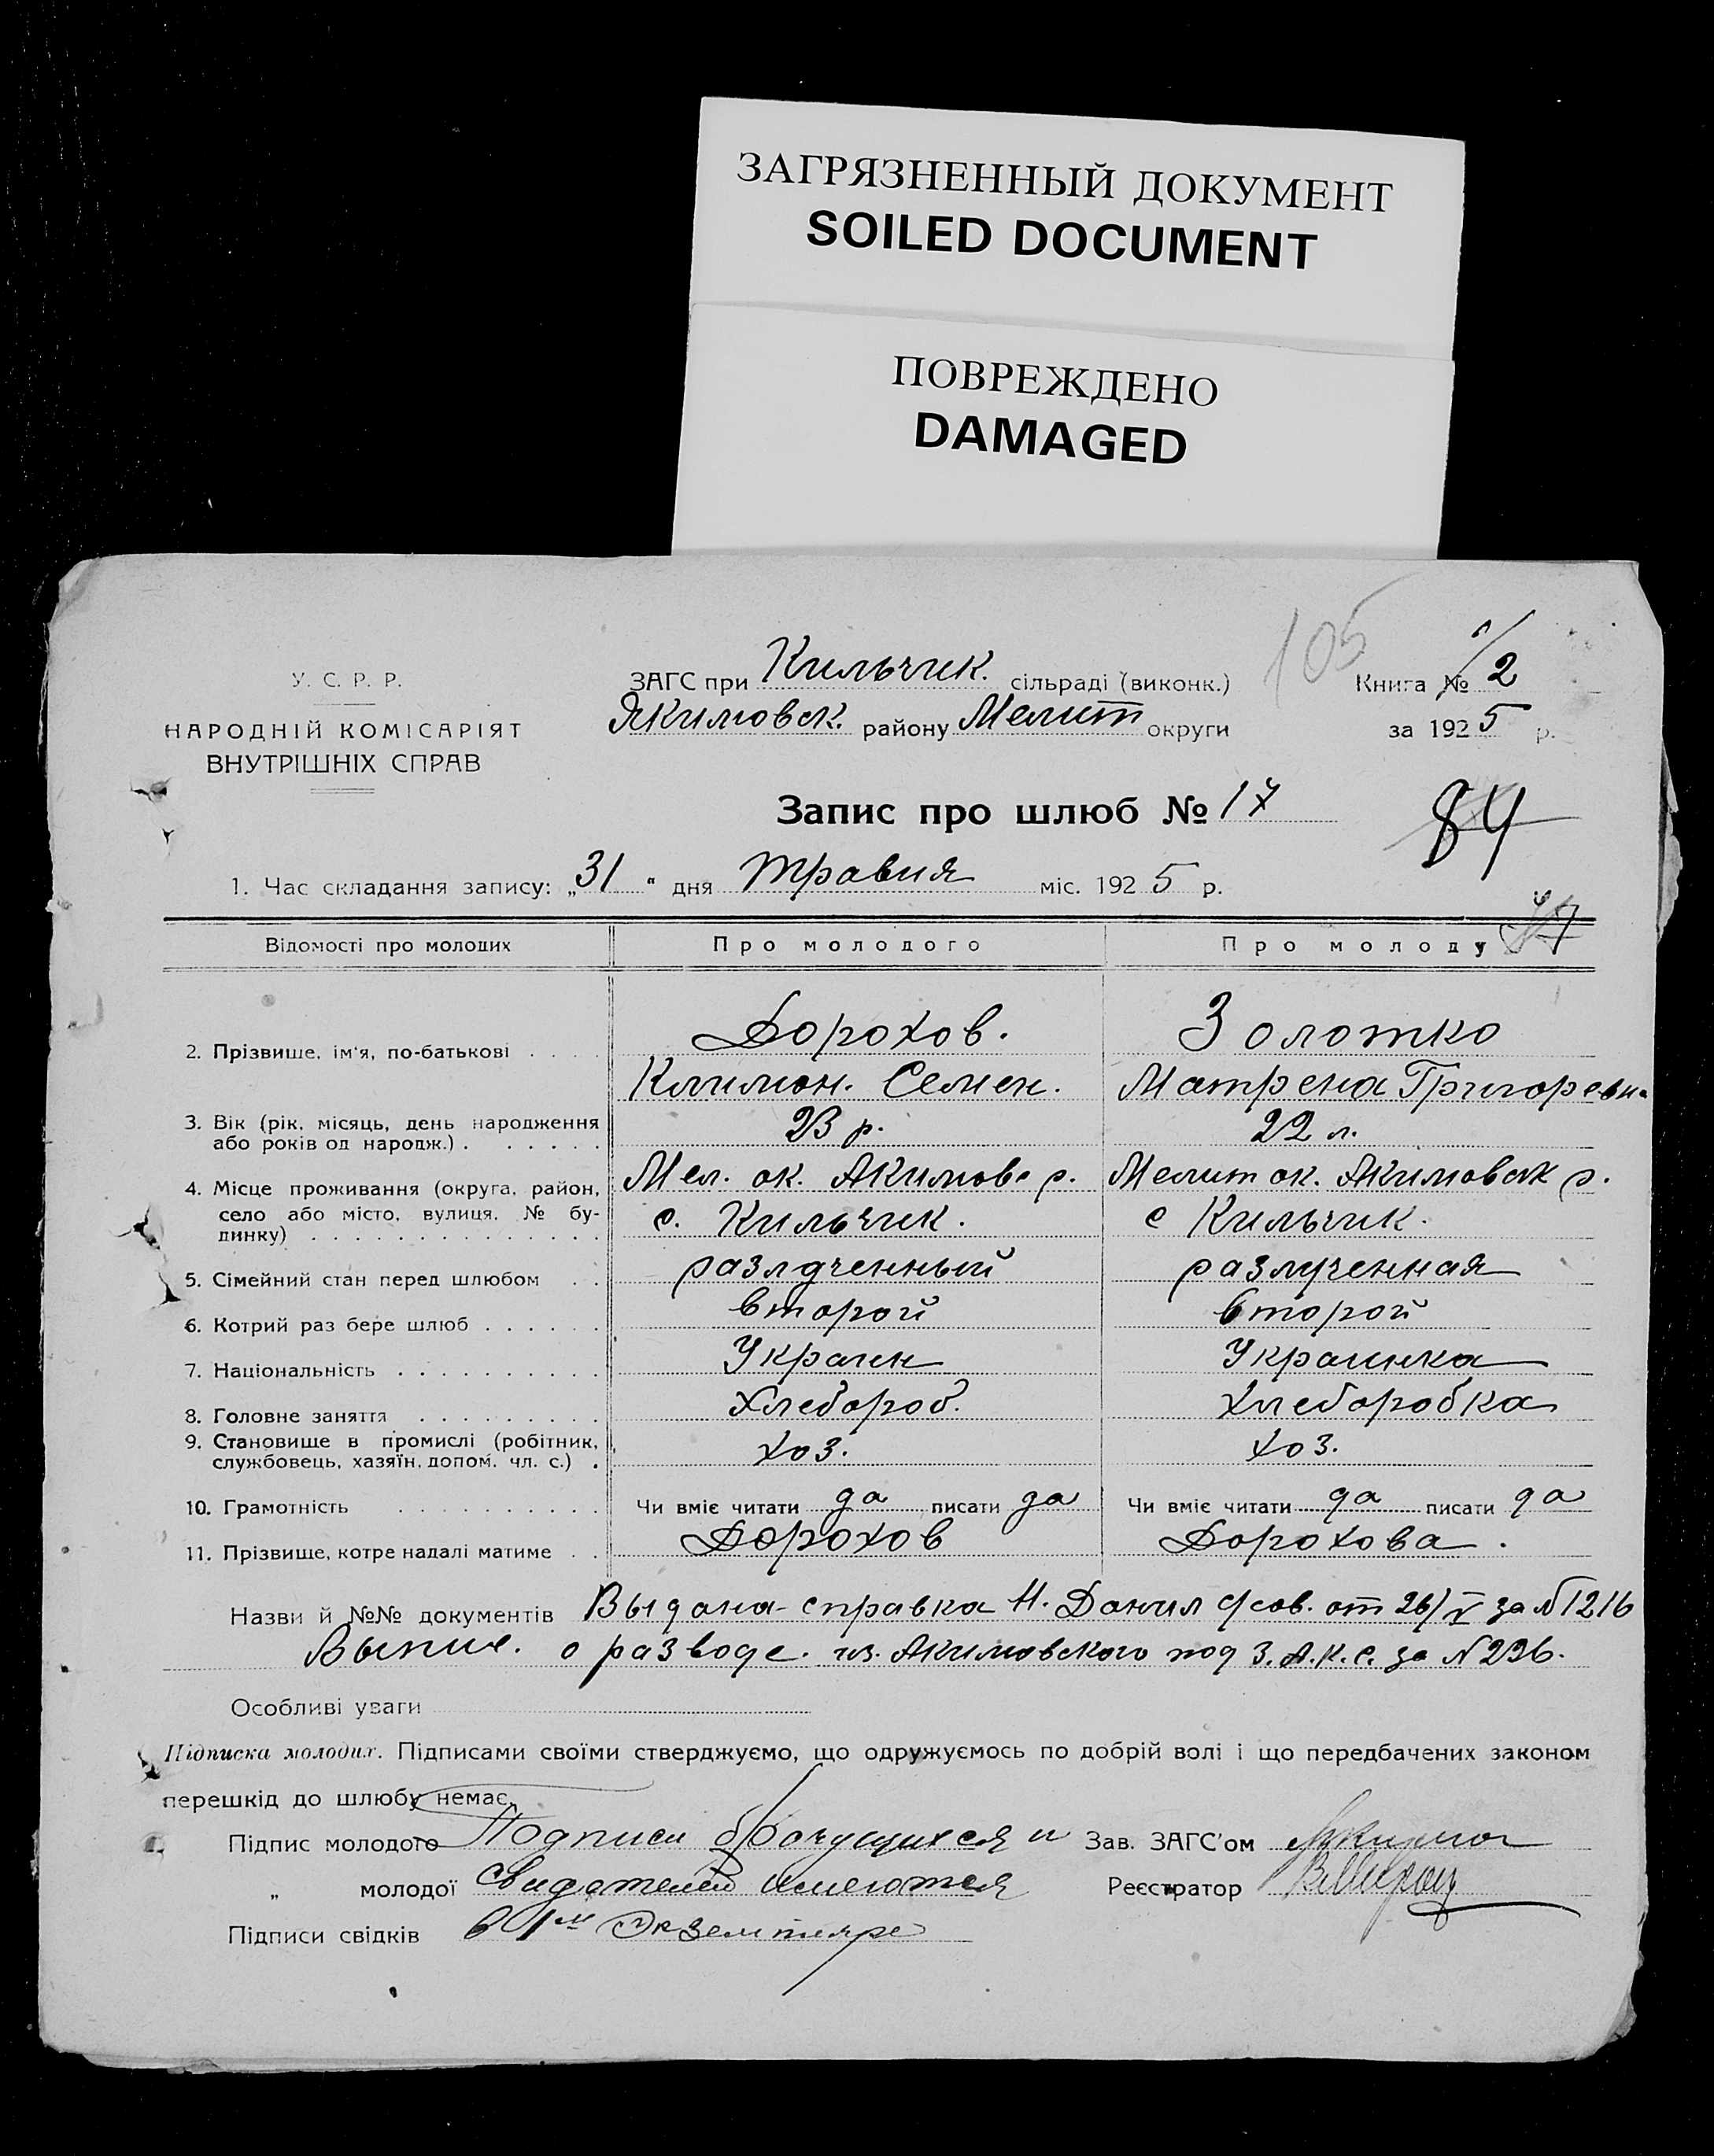 ЗАГРЯЗНЕННЫЙ ДОКУМЕНТ
SOILED DOCUMENT
ПОВРЕЖДЕНО
DAMAGED
105
У. С. Р. Р.
НАРОДНІЙ КОМІСАРІЯТ
ВНУТРІШНІХ СПРАВ
ЗАГС при Кильчик. сільраді (виконк.)
Якимовск. району Мелит округи
Книга № 2
за 1925 р.
Запис про шлюб № 17
84
1. Час складання запису: „31" дня травня міс. 1925 р.
Відомості про молодих Про молодого Про молоду
2. Прізвище, ім'я, по-батькові . . . . Дорохов. Золотко
Климон. Семен. Матрена Григоревн.
3. Вік (рік, місяць, день народження
або років од народж.) . . . . . . 23 р. 22 л.
4. Місце проживання (округа, район, Мел. ок. Акимовс р. Мелит ок. Акимовск р.
село або місто, вулиця, № бу- с. Кильчик. с Кильчик.
динку) . . . . . . . . . . . . . .
5. Сімейний стан перед шлюбом . . разлученный разлученная
6. Котрий раз бере шлюб . . . . . . второй второй
7. Національність . . . . . . . . . . Украин Украинка
8. Головне заняття . . . . . . . . . Хлебороб. хлеборобка
9. Становище в промислі (робітник,
службовець, хазяїн, допом. чл. с.) . хоз. хоз.
10. Грамотність . . . . . . . . . . Чи вміє читати да писати да Чи вміє читати да писати да
11. Прізвище, котре надалі матиме . . Дорохов Дорохова.
Назви й №№ документів Выдана справка Н. Данил с/сов. от 26/V за № 1216
Выпис. о разводе. из. Акимовского под З.А.К.С. за № 236.
Особливі уваги
Підписка молодих. Підписами своїми стверджуємо, що одружуємось по добрій волі і що передбачених законом
перешкід до шлюбу немає.
Підпис молодого Подписи брачущихся и Зав. ЗАГС'ом
„ молодої свидетелей имеются Реєстратор
Підписи свідків в 1м экземпляре